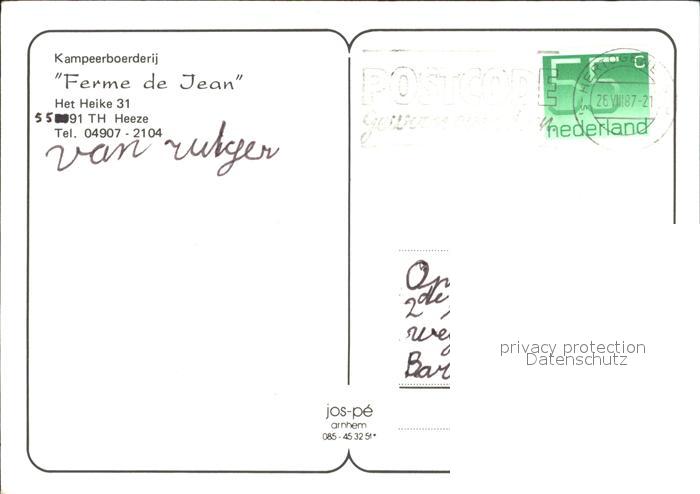 Kampeerboerderij
"Ferme de Jean"
Het Heike 31
5591 TH Heeze
Tel. 04907 - 2104
van rutger
POSTCODE
55 c
nederland
26.VIII.87-21
Op
2de
weg
Bar
privacy protection
Datenschutz
jos-pé
arnhem
085 - 45 32 51*